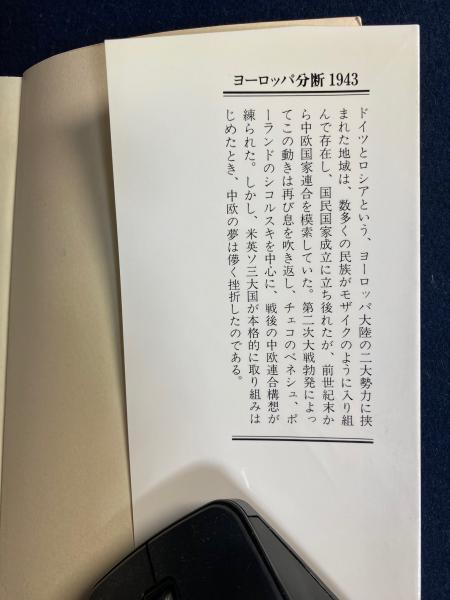 ヨーロッパ分断1943
ドイツとロシアという、ヨーロッパ大陸の二大勢力に挟
まれた地域は、数多くの民族がモザイクのように入り組
んで存在し、国民国家成立に立ち後れたが、前世紀末か
ら中欧国家連合を模索していた。第二次大戦勃発によっ
てこの動きは再び息を吹き返し、チェコのベネシュ、ポ
ーランドのシコルスキを中心に、戦後の中欧連合構想が
練られた。しかし、米英ソ三大国が本格的に取り組みは
じめたとき、中欧の夢は儚く挫折したのである。